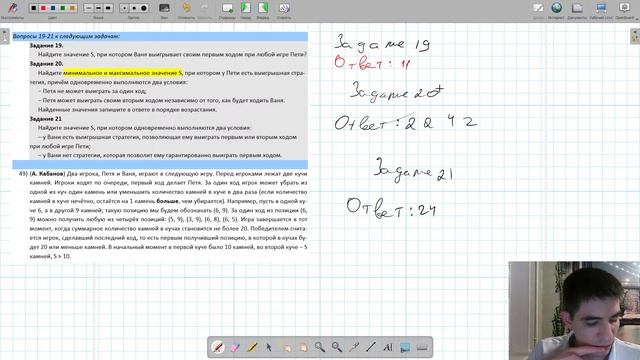 Вопросы 19-21 к следующим задачам:
Задание 19.
Найдите значение S, при котором Ваня выигрывает своим первым ходом при любой игре Пети?
Задание 20.
Найдите минимальное и максимальное значение S, при котором у Пети есть выигрышная стра-
тегия, причём одновременно выполняются два условия:
– Петя не может выиграть за один ход;
– Петя может выиграть своим вторым ходом независимо от того, как будет ходить Ваня.
Найденные значения запишите в ответе в порядке возрастания.
Задание 21
Найдите значение S, при котором одновременно выполняются два условия:
– у Вани есть выигрышная стратегия, позволяющая ему выиграть первым или вторым ходом
при любой игре Пети;
– у Вани нет стратегии, которая позволит ему гарантированно выиграть первым ходом.
49) (А. Кабанов) Два игрока, Петя и Ваня, играют в следующую игру. Перед игроками лежат две кучи
камней. Игроки ходят по очереди, первый ход делает Петя. За один ход игрок может убрать из
одной из куч один камень или уменьшить количество камней в куче в два раза (если количество
камней в куче нечётно, остаётся на 1 камень больше, чем убирается). Например, пусть в одной ку-
че 6, а в другой 9 камней; такую позицию мы будем обозначать (6, 9). За один ход из позиции (6,
9) можно получить любую из четырёх позиций: (5, 9), (3, 9), (6, 8), (6, 5). Игра завершается в тот
момент, когда суммарное количество камней в кучах становится не более 20. Победителем счита-
ется игрок, сделавший последний ход, то есть первым получивший позицию, в которой в кучах бу-
дет 20 или меньше камней. В начальный момент в первой куче было 10 камней, во второй куче – S
камней, S > 10.
Задание 19
Ответ: 11
Задание 20
Ответ: 22 42
Задание 21
Ответ: 24